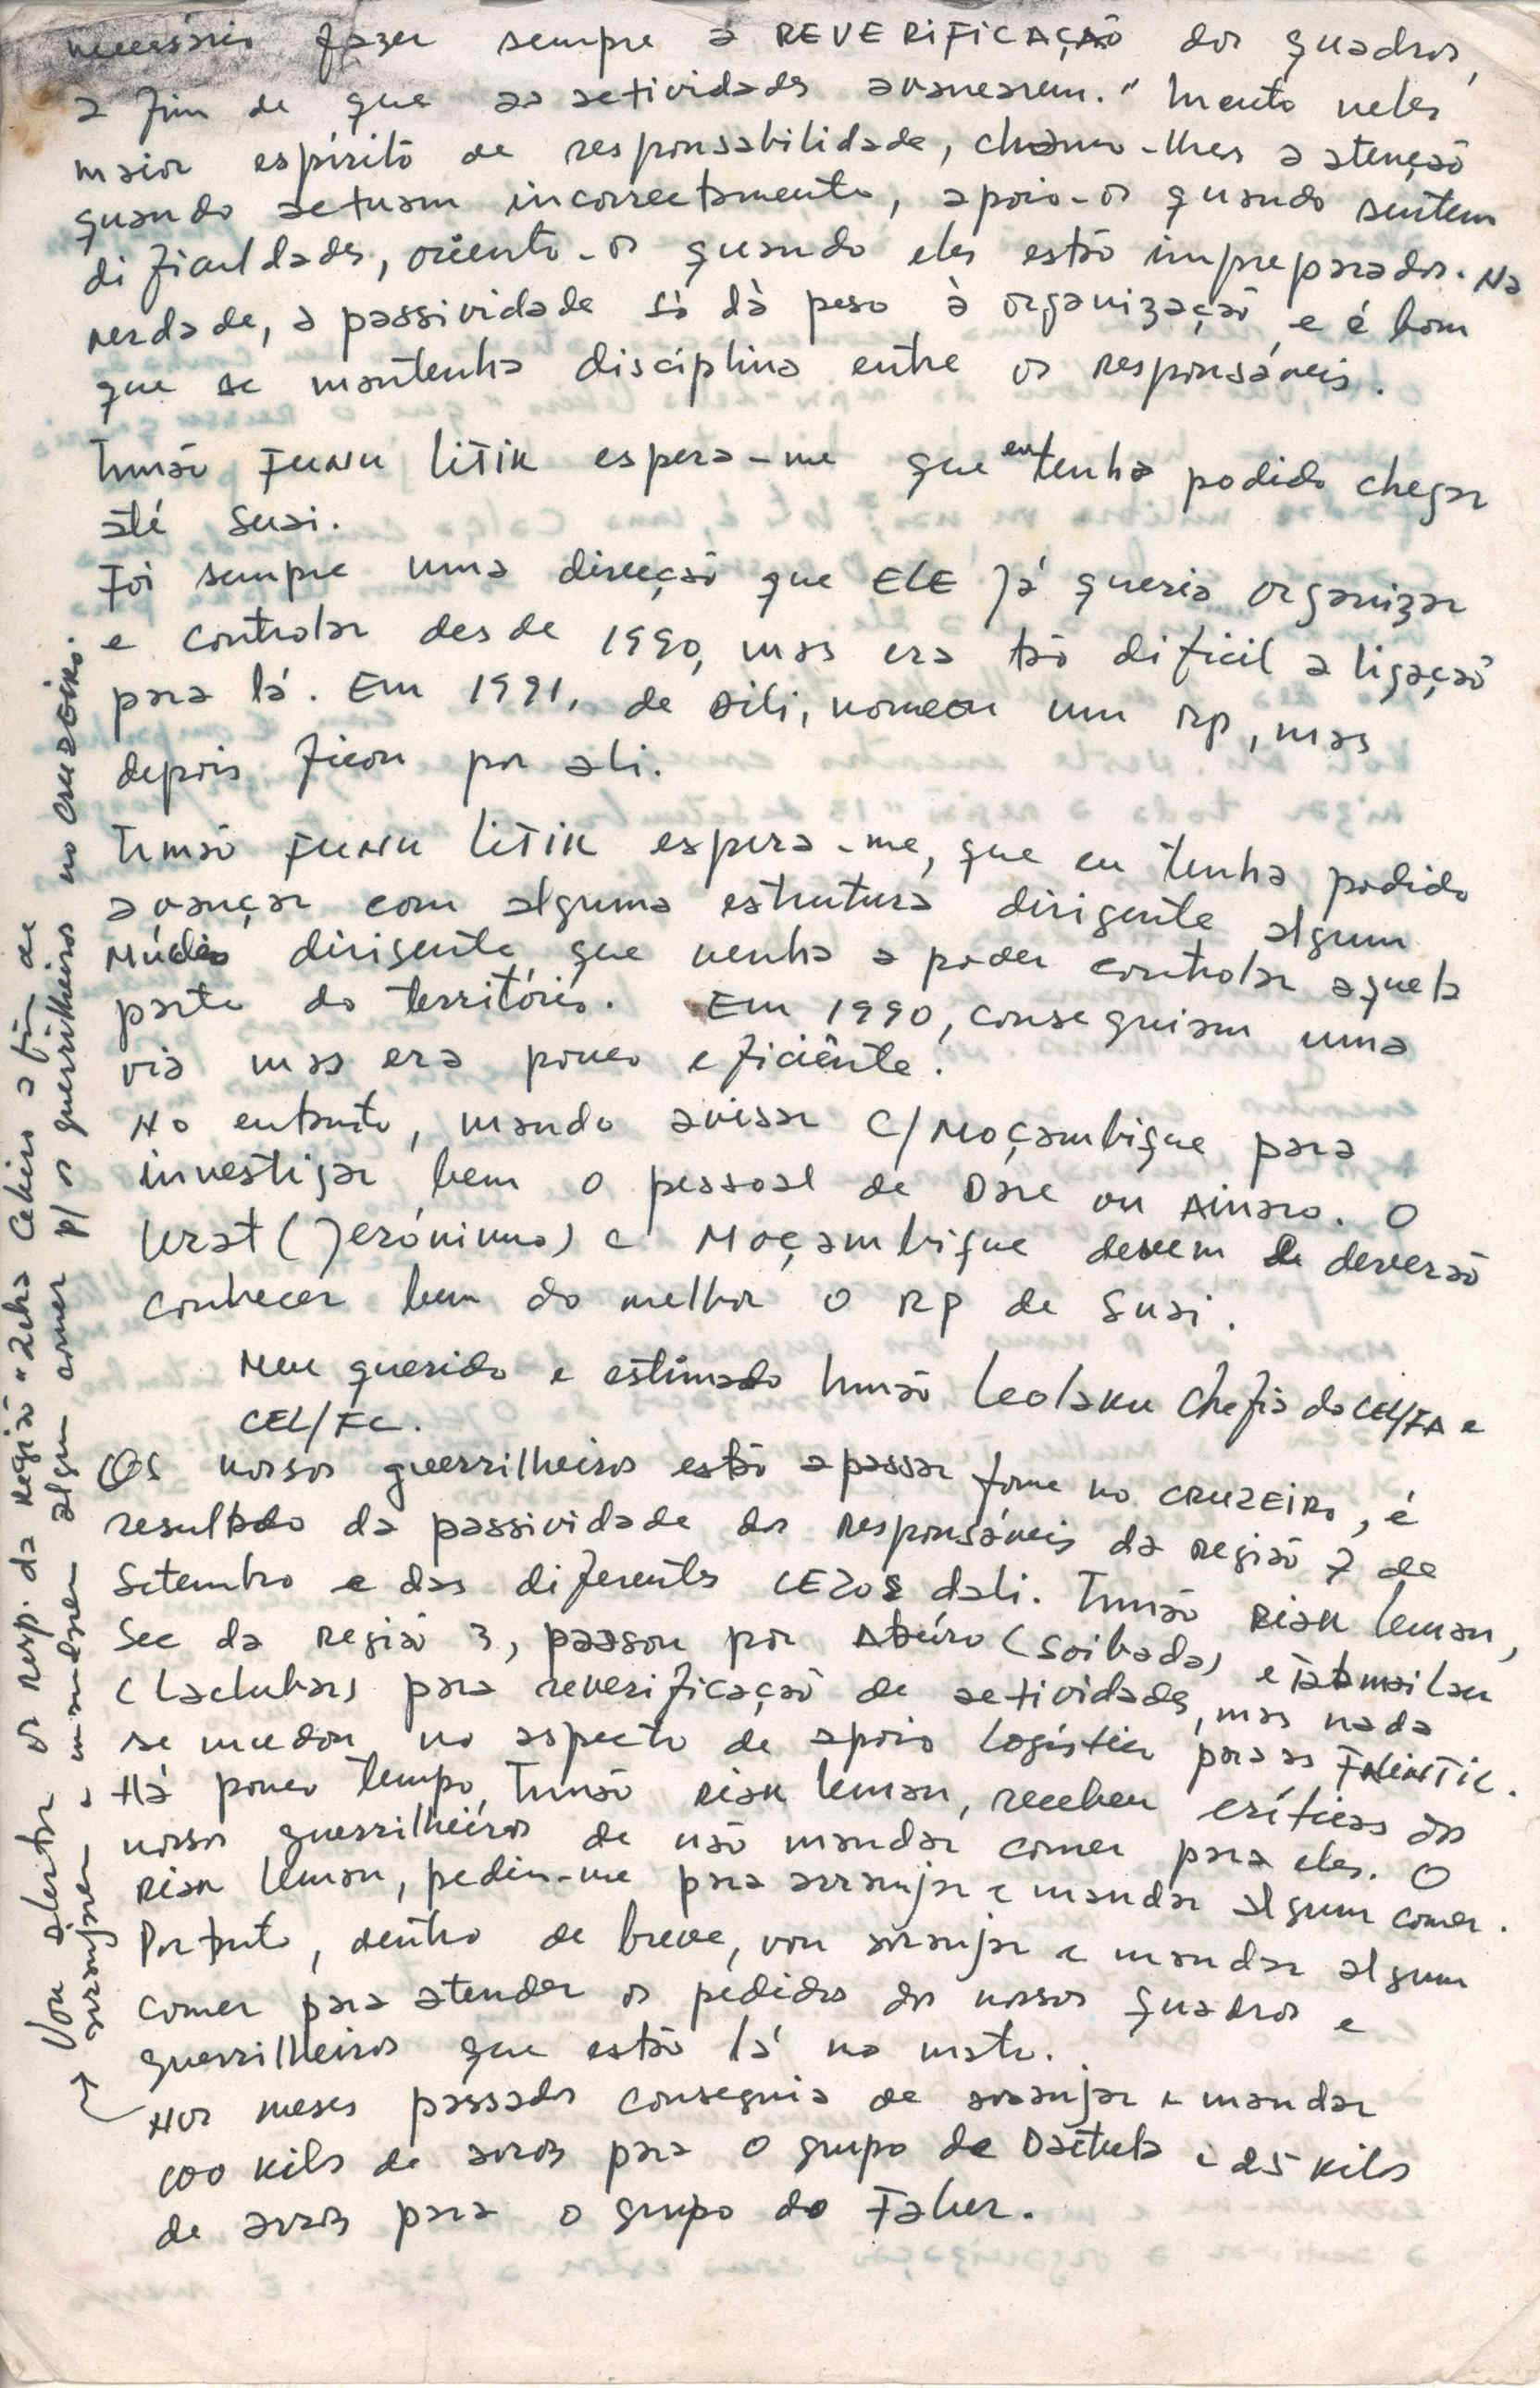 necessário fazer sempre a REVERIFICAÇAÕ dos quadros,
a fim de que as actividades avancarem." Incuto neles
maior espírito de responsabilidade, chamo-lhes a atençaõ
quando actuam incorrectamente, apoio-os quando sentem
dificuldades, oriento-os quando eles estão impreparados. Na
verdade, a passividade só dá peso à organizaçaõ e é bom
que se mantenha disciplina entre os responsáveis.
Irmão FUNU LITIK espera-me que eu tenha podido chegar
até Suai.
Foi sempre uma direcçaõ que ELE já queria organizar
e controlar desde 1990, mas era tão dificil a ligaçaõ
para lá. Em 1991, de Dili, nomeou um RP, mas
depois ficou por ali.
Irmaõ FUNU LITIK espera-me, que eu tenha podido
avançar com alguma estrutura dirigente algum
Núcleo dirigente que venha a poder controlar aquela
parte do território. Em 1990, conseguiam uma
via mas era pouco eficiênte.
No entanto, mando avisar C/Moçambique para
investigar bem o pessoal de Dare ou Ainaro. O
Urat (Jerónimo) e Moçambique devem deverão
conhecer bem do melhor o RP de Suai.
Meu querido e estimado Irmão Leolaku Chefia da CEL/FA e
CEL/FC.
Os nossos guerrilheiros estão a passar fome no CRUZEIRO, é
resultado da passividade dos Responsáveis da região 7 de
Setembro e das diferentes CEZOS dali. Irmão Rian Leman,
Sec da região 3, passou por (Soibada) e
(Laclubar) para reverificaçaõ de actividades, mas nada
se mudou no aspecto de apoio logístico para as FALINTIL.
Há pouco tempo, Irmão Rian Leman, recebeu críticas dos
nossos guerrilheiros de não mandar comer para eles. O
Rian Leman, pediu-me para arranjar e mandar algum comer.
Portanto, dentro de breve, vou arranjar e mandar algum
comer para atender os pedidos dos nossos quadros e
guerrilheiros que estão lá no mato.
Nos meses passados conseguia de arranjar e mandar
100 kilos de arroz para o grupo de Daitula e 25 kilos
de arroz para o grupo do Falur.
Vou alertar os resp. da Região "2 a fim de
arranjarem e mandarem algum comer p/ os guerrilheiros no CRUZEIRO.